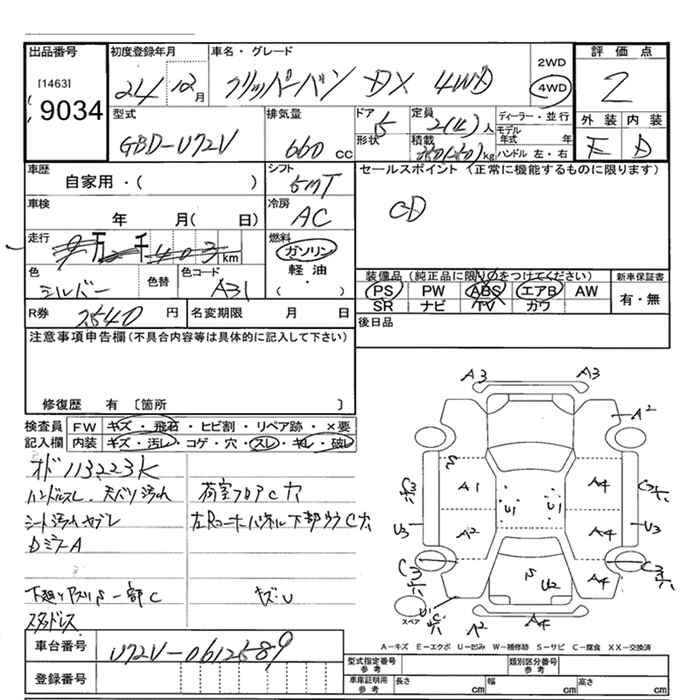 出品番号 初度登録年月 車名・グレード 評価点
[1463] 9034
24 12月 クリッパーバン DX 4WD 2WD 4WD 2
型式 排気量 ドア 定員 ディーラー・並行 外装 内装
GBD-U72V 660 cc 5 2(4)人 モデル年式 年 E D
形状 積載 kg ハンドル 左・右
車歴 シフト セールスポイント(正常に機能するものに限ります)
自家用・( ) 5MT CD
車検 冷房
年 月( 日) AC
走行 万 千 403 km 燃料 ガソリン・軽油・( )
色 色替 色コード 装備品(純正品に限り○をつけてください) 新車保証書
シルバー A31 PS PW ABS エアB AW 有・無
SR ナビ TV カワ
R券 円 名変期限 月 日 後日品
2540
注意事項申告欄(不具合内容等は具体的に記入して下さい)
修復歴 有〔箇所 〕
検査員記入欄 FW キズ・飛石・ヒビ割・リペア跡・×要
内装 キズ・汚レ・コゲ・穴・スレ・キレ・破レ
オド113223K
ハンドルスレ、天バリ汚れ 荷室フロアC穴
シート汚れヤブレ 左Rコーナーパネル下部ウラC穴
DミラーA
下廻りサビ一部C キズU
スタッドレス
A3 A3
A2
S
A1 U1 U1 A4
U3 A2 A4 U3
C3 S U2 A4 C3
スペア A2 A4
A-キズ E-エクボ U-凹み W-補修跡 S-サビ C-腐食 XX-交換済
車台番号 U72V-0612589
登録番号
型式指定番号 参考 類別区分番号 参考
車庫証明用 参考 長さ cm 幅 cm 高さ cm